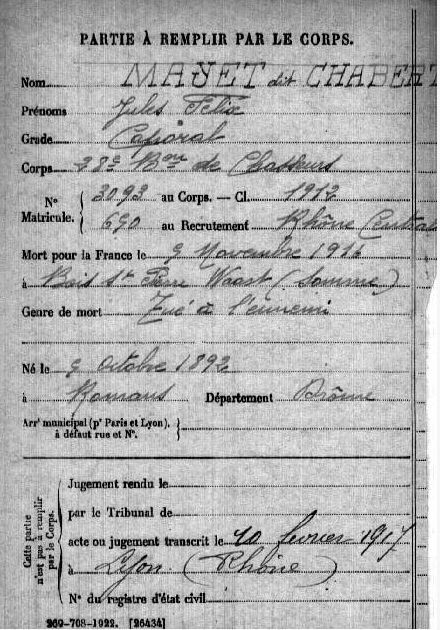 PARTIE À REMPLIR PAR LE CORPS.
Nom MAYET dit CHABERT
Prénoms Jules Félix
Grade Caporal
Corps 28e Bon de Chasseurs
N° Matricule. { 3093 au Corps. — Cl. 1912
690 au Recrutement Rhône Central
Mort pour la France le 9 Novembre 1916
à Bois St Pierre Waast (Somme)
Genre de mort Tué à l'ennemi
Né le 9 Octobre 1892
à Romans Département Drôme
Arrt municipal (pr Paris et Lyon), à défaut rue et N°. }
Cette partie n'est pas à remplir par le Corps.
Jugement rendu le
par le Tribunal de
acte ou jugement transcrit le 10 février 1917
à Lyon (Rhône)
N° du registre d'état civil
269-708-1922. [26434]